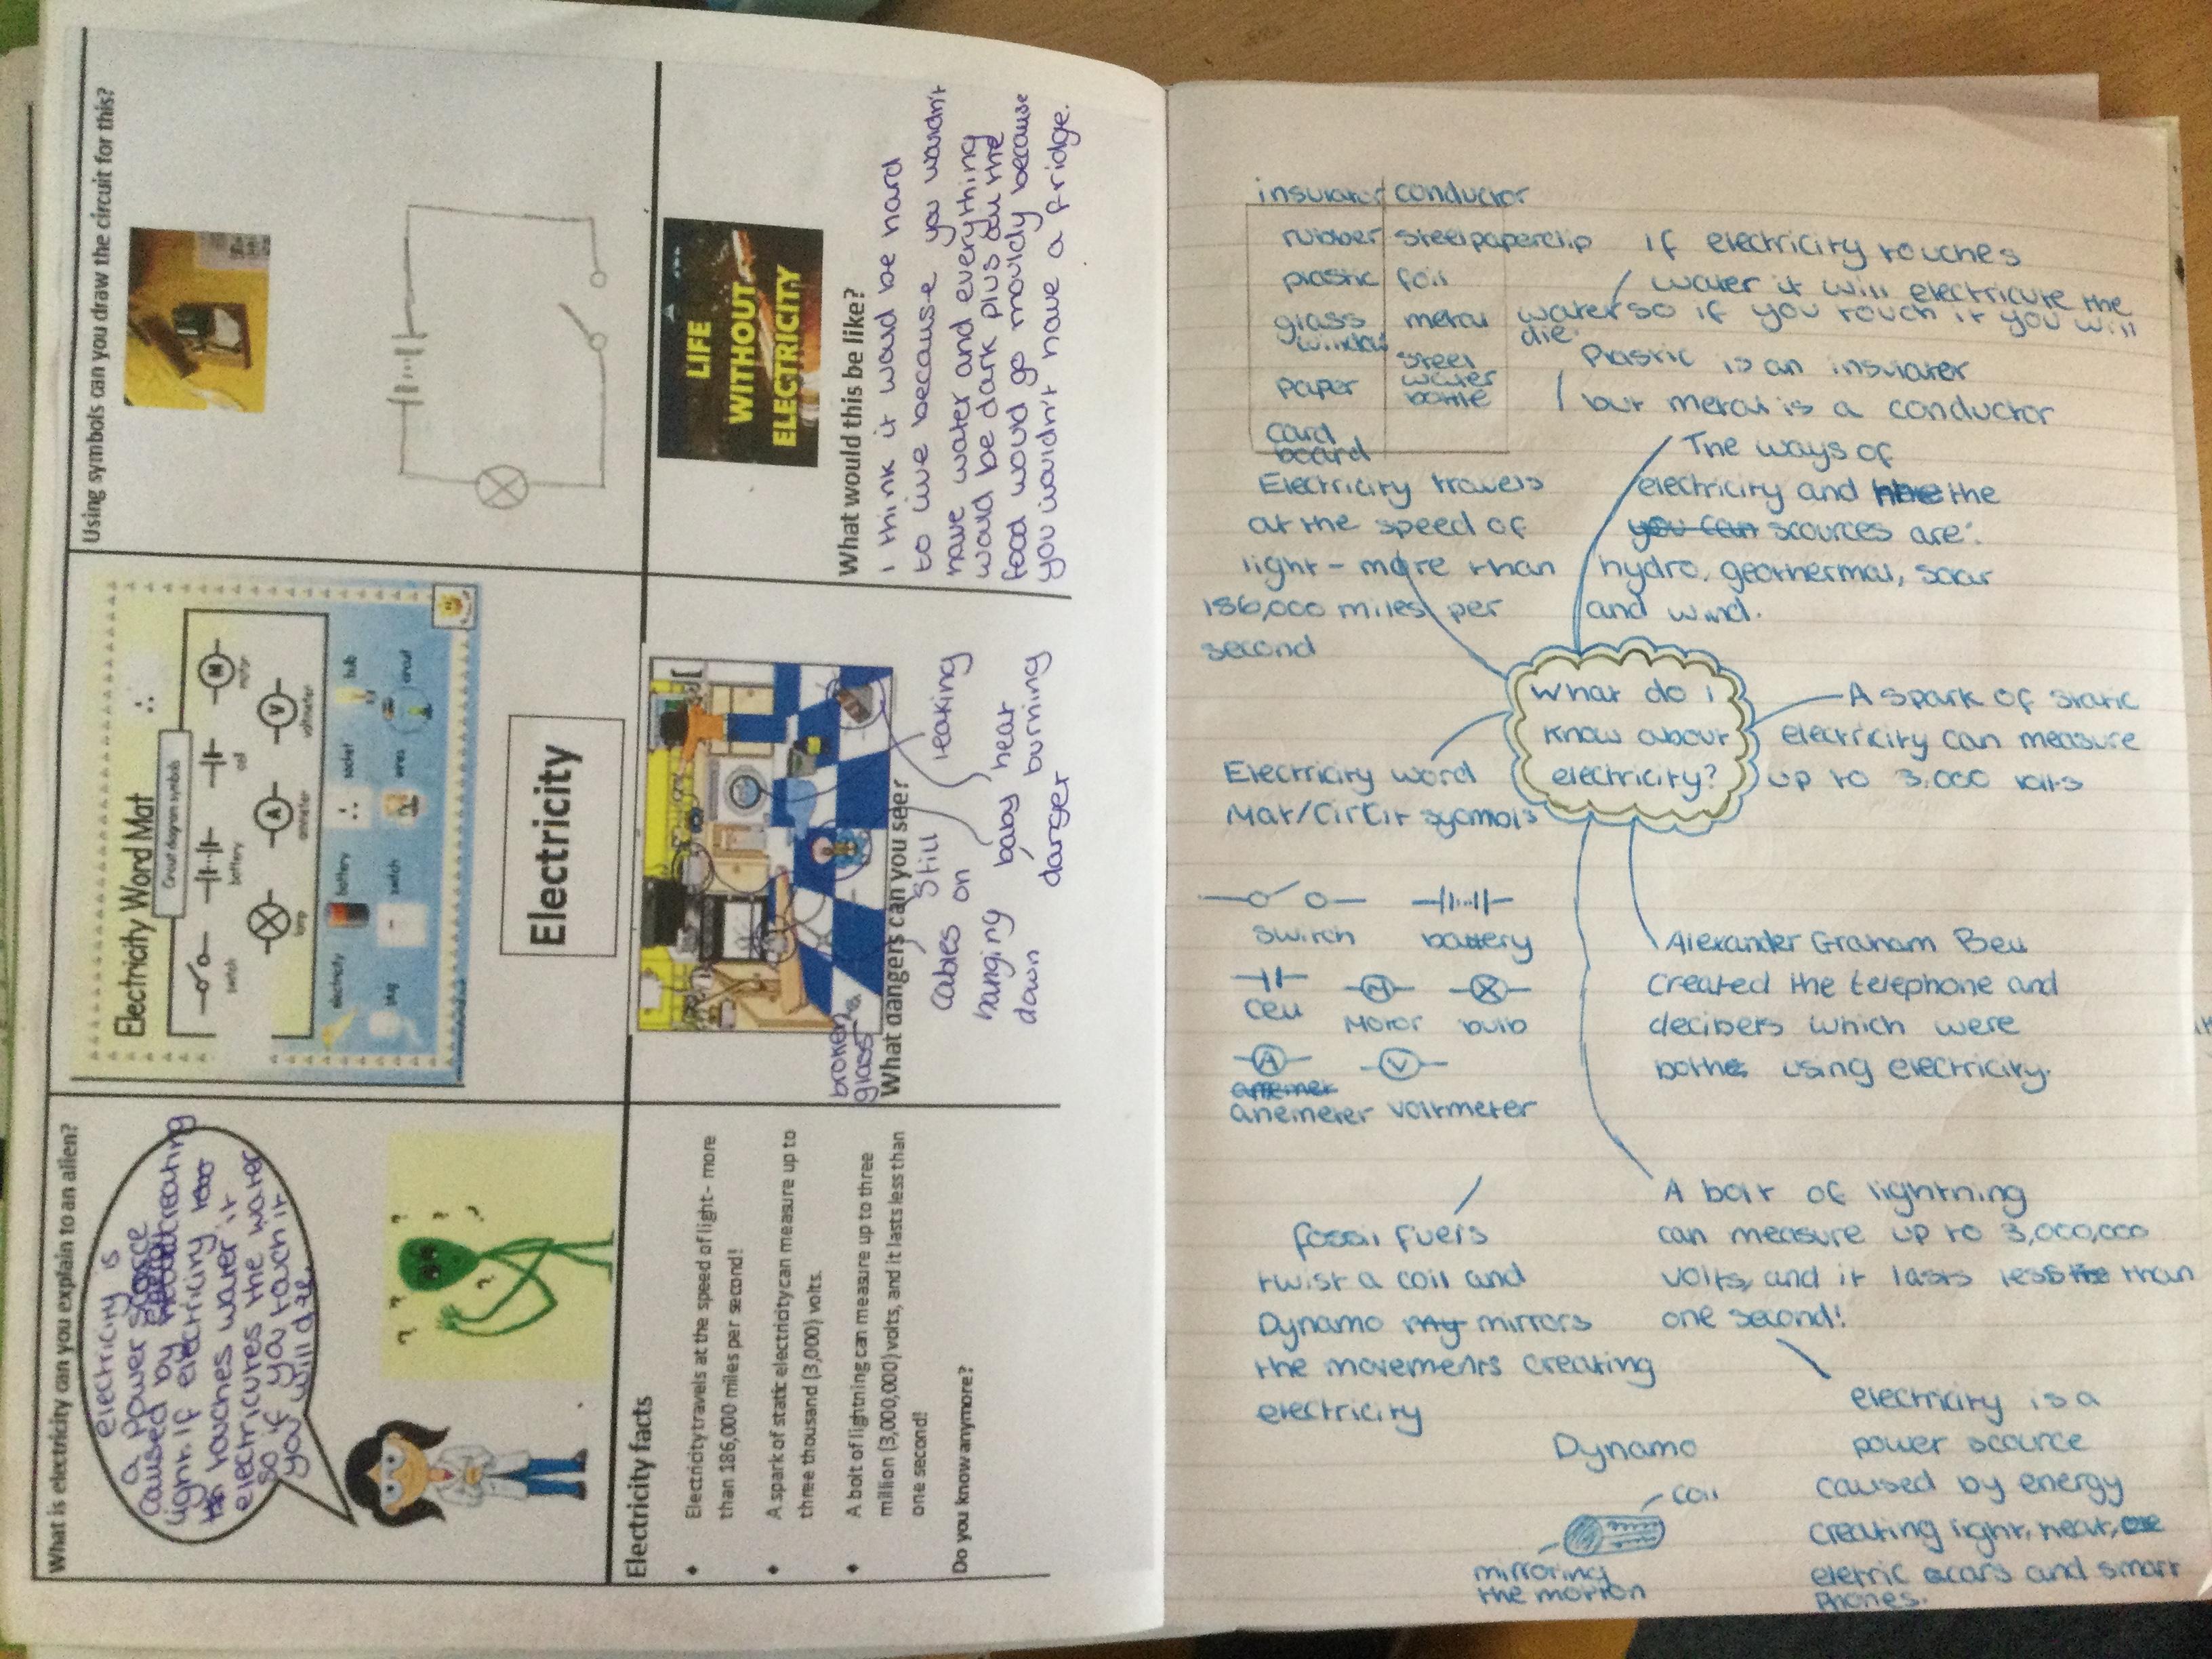 What is electricity can you explain to an alien?
electricity is
a power source
caused by creating
light. if electricity
touches water it
electricutes the water
so if you touch it
you will die.
Electricity Word Mat
Circuit diagram symbols
switch
battery
cell
motor
lamp
ammeter
voltmeter
electricity
battery
socket
bulb
plug
switch
wires
circuit
M
A
V
Electricity
Using symbols can you draw the circuit for this?
Electricity facts
Electricity travels at the speed of light- more
than 186,000 miles per second!
A spark of static electricity can measure up to
three thousand (3,000) volts.
A bolt of lightning can measure up to three
million (3,000,000) volts, and it lasts less than
one second!
Do you know anymore?
broken
glass
What dangers can you see?
cables
hanging
down
Still
on
leaking
baby near
danger
burning
LIFE
WITHOUT
ELECTRICITY
What would this be like?
I think it would be hard
to live because you wouldn't
have water and everything
would be dark plus all the
food would go mouldy because
you wouldn't have a fridge.
insulator conductor
rubber steel paperclip
plastic foil
glass window metal
paper steel water bottle
card board
if electricity touches
water it will electricute the
water so if you touch it you will
die.
Plastic is an insulater
but metal is a conductor
The ways of
electricity and the
scources are:
hydro, geothermal, solar
and wind.
Electricity travels
at the speed of
light - more than
186,000 miles per
second
What do i
know about
electricity?
A spark of static
electricity can measure
up to 3,000 volts
Electricity word
Mat/Circit symols
switch battery
cell Motor bulb
M
A V
anemeter voltmeter
Alexander Graham Bell
created the telephone and
decibels which were
both using electricity.
A bolt of lightning
can measure up to 3,000,000
volts, and it lasts less than
one second!
fossil fuels
twist a coil and
Dynamo mirrors
the movements creating
electricity
Dynamo
coil
mirroring
the motion
electricity is a
power scource
caused by energy
creating light, heat,
eletric cars and smart
phones.